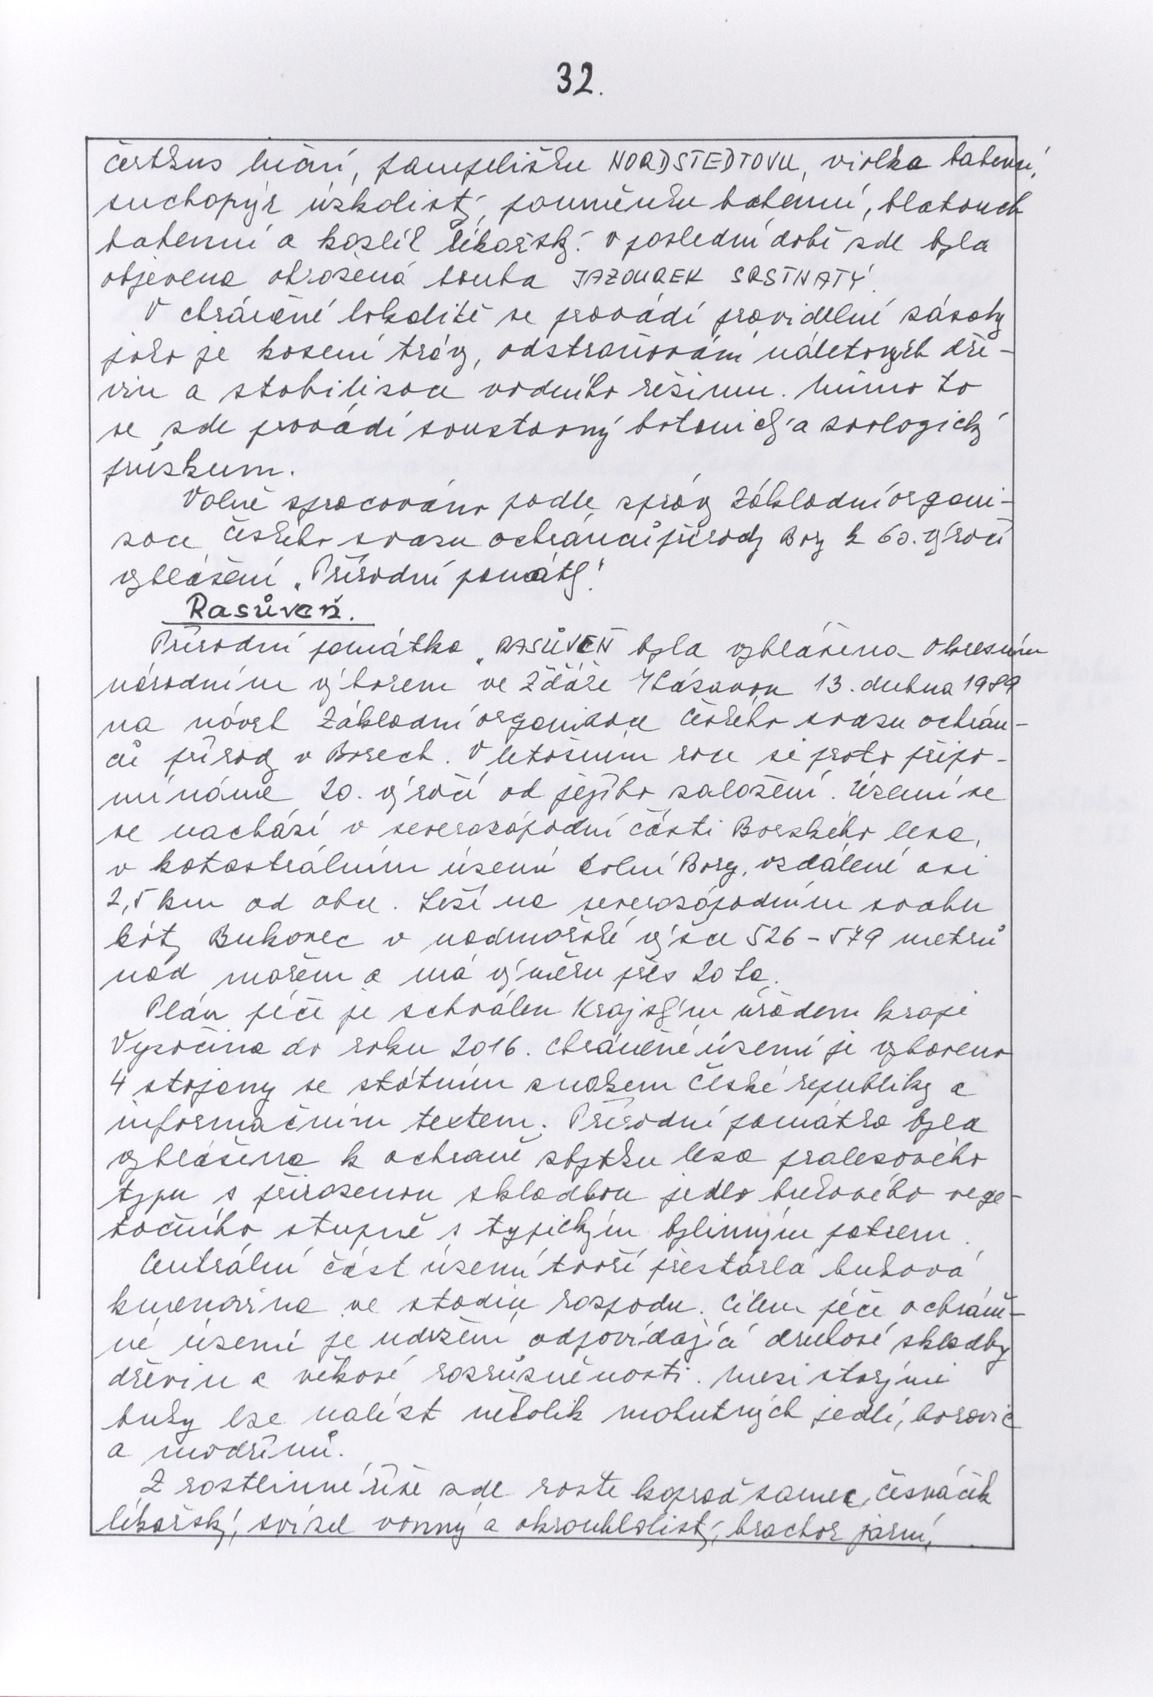 32.
čertkus luční, pampelišku NORDSTEDTOVU, violka bahenní,
suchopýr úzkolistý, pomněnku bahenní, blatouch
bahenní a kozlík lékařský. V poslední době zde byla
objevena ohrožená houba JAZOUREK SRSTNATÝ.
V chráněné lokalitě se provádí pravidelné zásahy
jako je kosení trávy, odstraňování náletových dře-
vin a stabilisace vodního režimu. Mimo to
se zde provádí soustavný botanický a zoologický
průzkum.
Volně zpracováno podle zprávy Základní organi-
zace Českého svazu ochránců přírody Bory k 60. výročí
vyhlášení „Přírodní památky“
Rasůveň.
Přírodní památka „RASŮVEŇ byla vyhlášena Okresním
národním výborem ve Žďáře n/Sázavou 13. dubna 1989
na návrh Základní organizace Českého svazu ochrán-
ců přírody v Borech. V letošním roce si proto připo-
mínáme 20. výročí od jejího založení. Území se
se nachází v severozápadní části Borského lesa,
v katastrálním území Dolní Bory, vzdálené asi
2,5 km od obce. Leží na severozápadním svahu
kóty Bukovec v nadmořské výšce 526 – 579 metrů
nad mořem a má výměru přes 20 ha.
Plán péče je schválen Krajským úřadem kraje
Vysočina do roku 2016. Chráněné území je vybaveno
4 stojany se státním znakem České republiky a
informačním textem. Přírodní památka byla
vyhlášena k ochraně zbytku lesa pralesového
typu s přirozenou skladbou jedlo bukového vege-
tačního stupně s typickým bylinným patrem.
Centrální část území tvoří přestárlá buková
kmenovina ve stadiu rozpadu. Cílem péče o chráně-
né území je udržení odpovídající druhové skladby
dřevin a věkové rozrůzněnosti. Mezi starými
buky lze nalézt několik mohutných jedlí, borovic
a modřínů.
Z rostlinné říše zde roste kapraď samec, česnáček
lékařský, svízel vonný a okrouhlolistý, hrachor jarní,